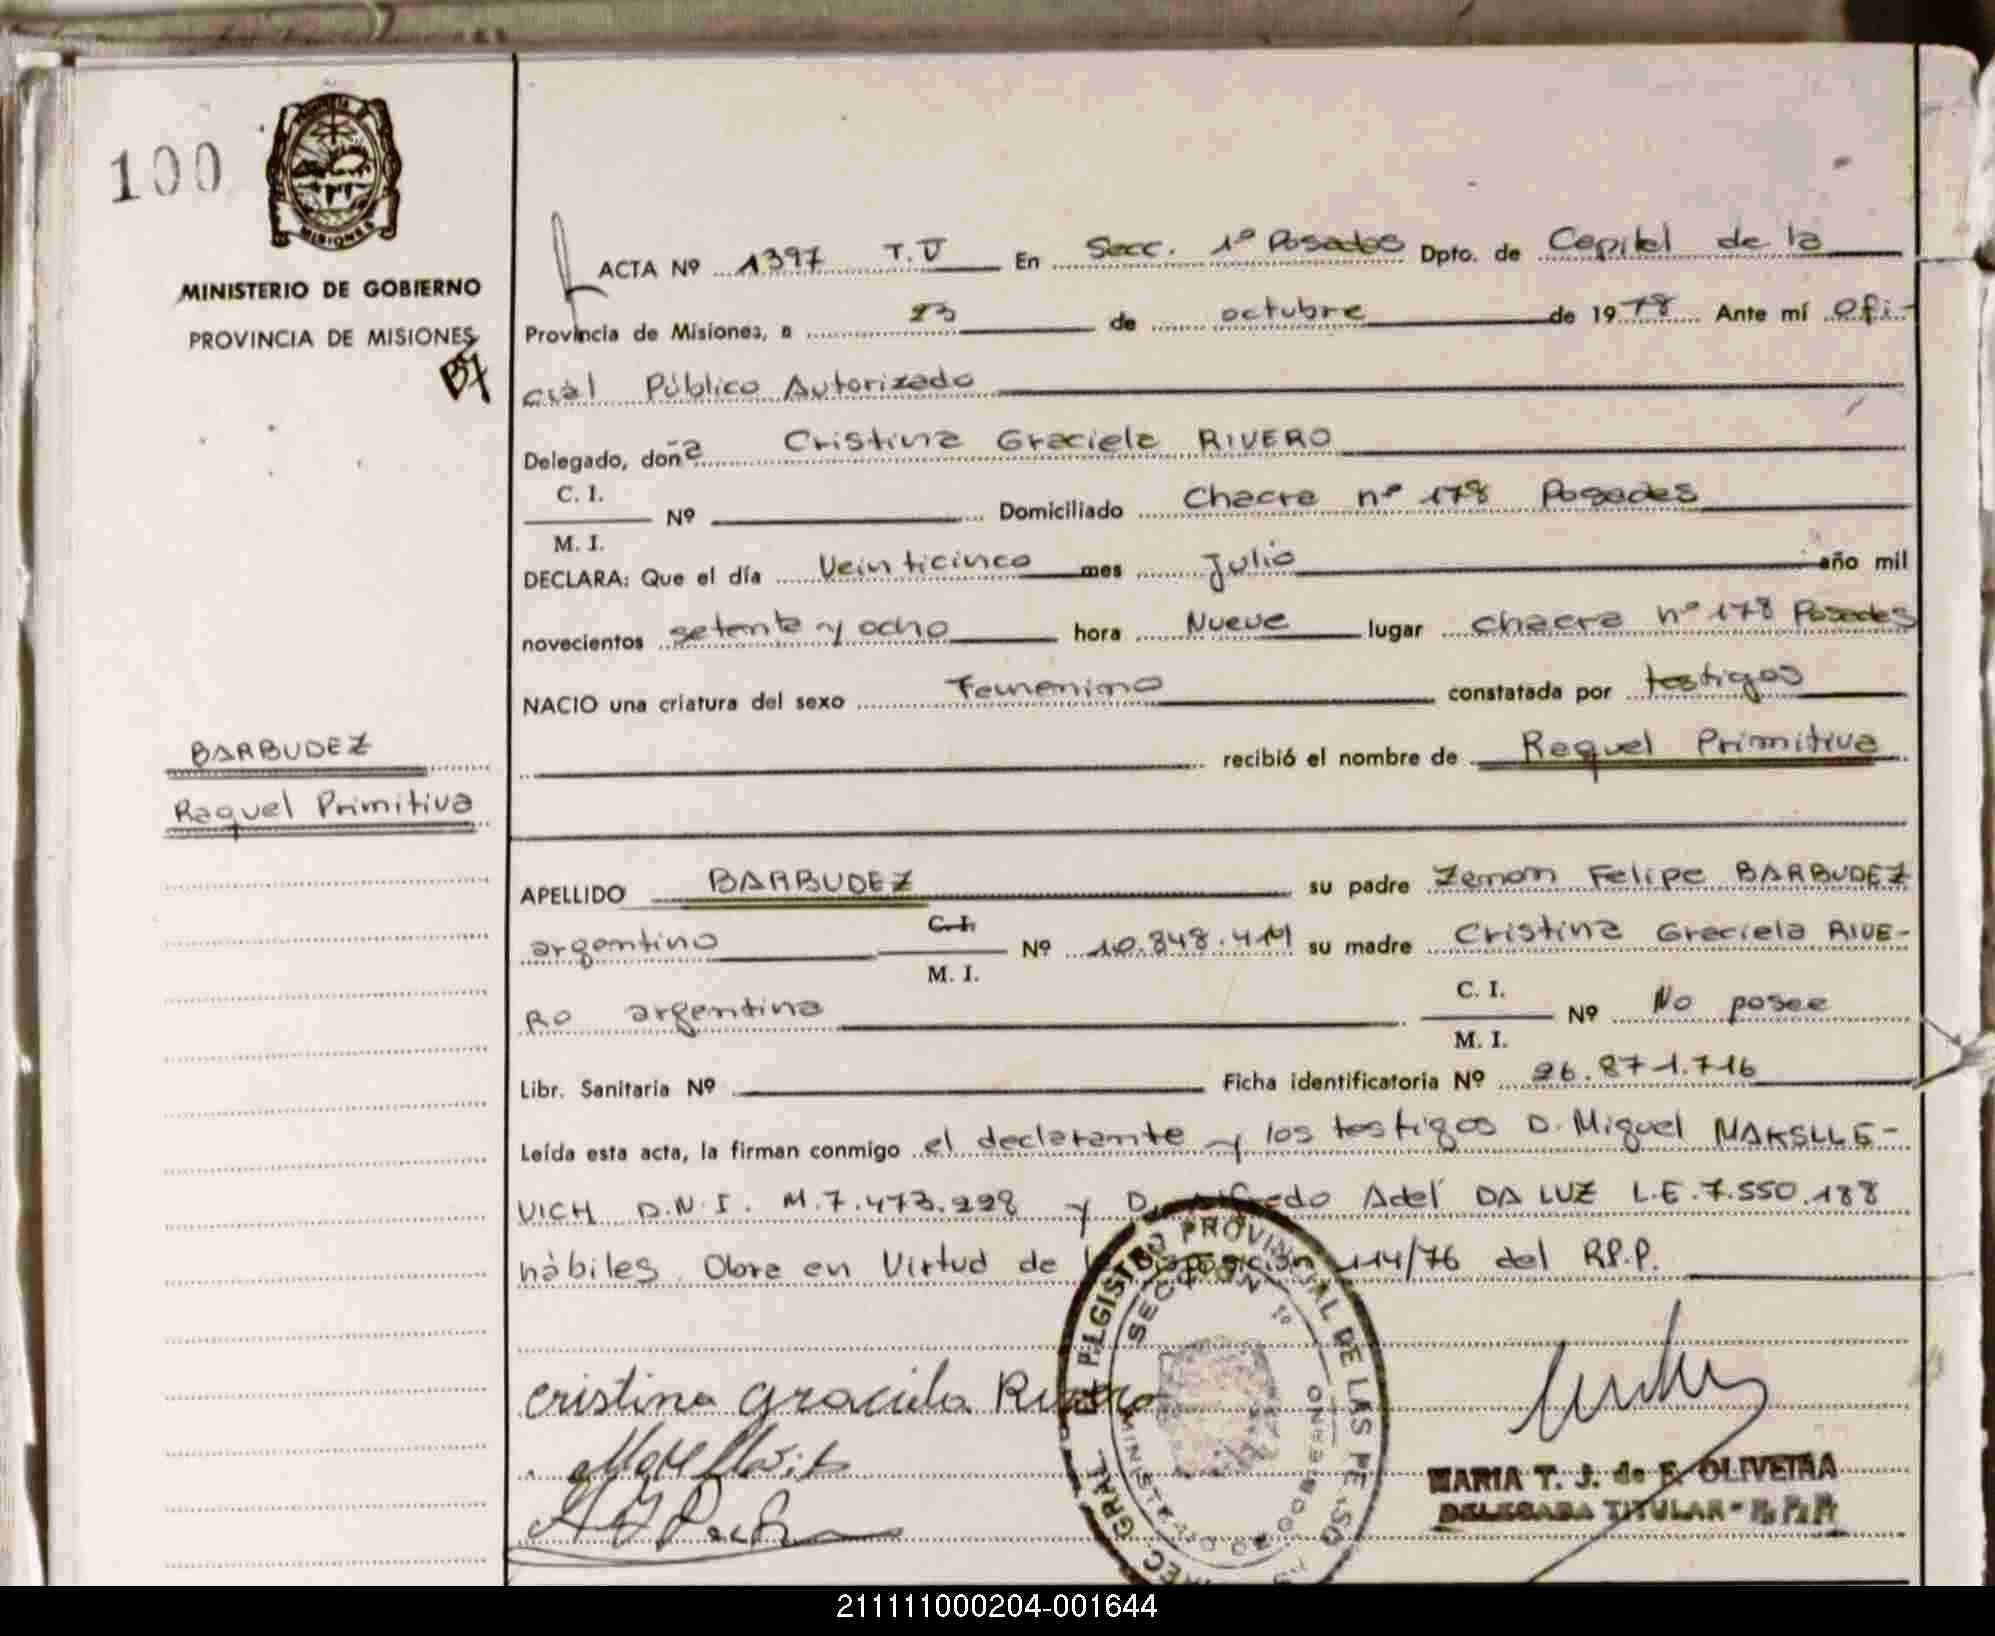 100
MISIONES
MINISTERIO DE GOBIERNO
PROVINCIA DE MISIONES
BARBUDEZ
Raquel Primitiva
ACTA Nº 1397 T.V En Secc. 1º Posadas Dpto. de Capital de la
Provincia de Misiones, a 23 de octubre de 1978 Ante mí Ofi-
cial Público Autorizado
Delegado, doña Cristina Graciela RIVERO
C. I.
Nº Domiciliado Chacra nº 178 Posadas
M. I.
DECLARA: Que el día Veinticinco mes Julio año mil
novecientos setenta y ocho hora Nueve lugar chacra nº 178 Posadas
NACIO una criatura del sexo Femenino constatada por testigos
recibió el nombre de Raquel Primitiva
APELLIDO BARBUDEZ su padre Zenon Felipe BARBUDEZ
C. I.
argentino Nº 10.848.411 su madre Cristina Graciela RIVE-
M. I.
C. I.
RO argentina Nº No posee
M. I.
Libr. Sanitaria Nº Ficha identificatoria Nº 26.871.716
Leída esta acta, la firman conmigo el declarante y los testigos D. Miguel MAKSLLE-
VICH D.N.I. M.7.473.298 y D. Alfredo Adel DA LUZ L.E.7.550.188
hábiles. Obra en Virtud de la Disposición 114/76 del R.P.P.
Cristina Graciela Rivero
REGISTRO PROVINCIAL DE LAS PERSO
SECCION 1º
MARIA T. J. de F. OLIVEIRA
DELEGADA TITULAR - R.P.P.
211111000204-001644